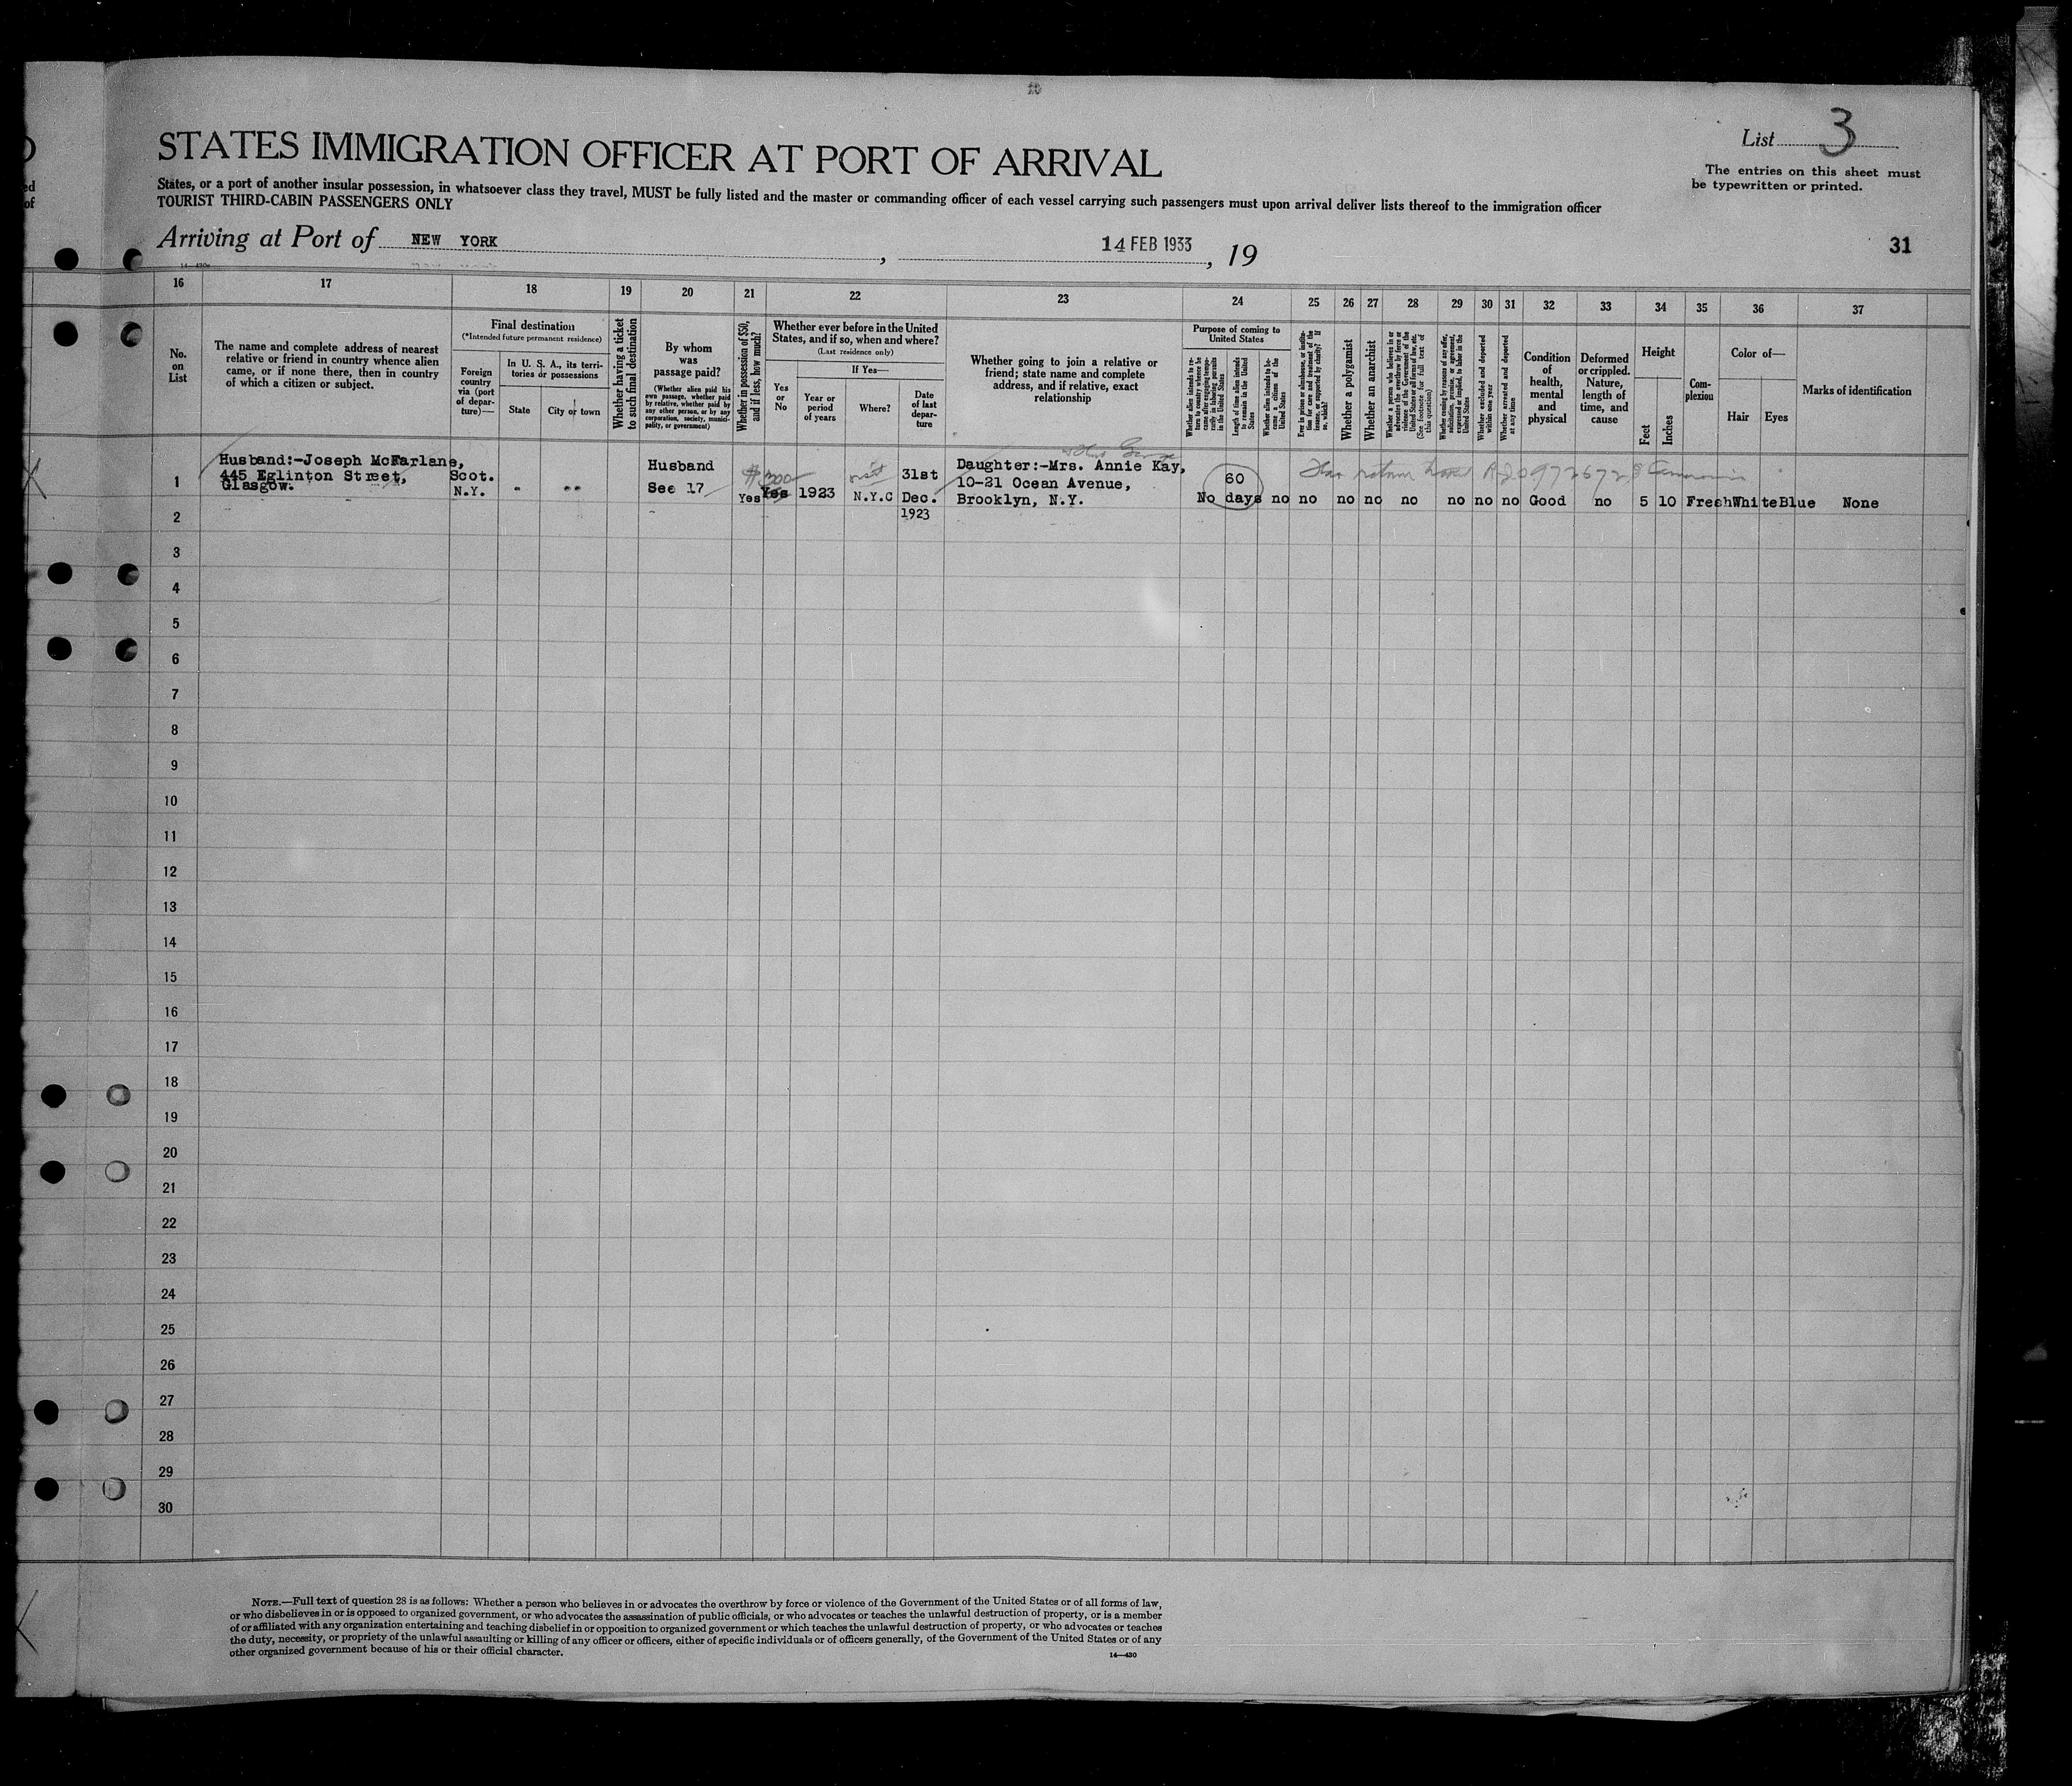 List 3
STATES IMMIGRATION OFFICER AT PORT OF ARRIVAL
The entries on this sheet must
be typewritten or printed.
States, or a port of another insular possession, in whatsoever class they travel, MUST be fully listed and the master or commanding officer of each vessel carrying such passengers must upon arrival deliver lists thereof to the immigration officer
TOURIST THIRD-CABIN PASSENGERS ONLY
ed
of
Arriving at Port of NEW YORK, 14 FEB 1933, 19
31
16 17 18 19 20 21 22 23 24 25 26 27 28 29 30 31 32 33 34 35 36 37
No.
on
List
The name and complete address of nearest
relative or friend in country whence alien
came, or if none there, then in country
of which a citizen or subject.
Final destination
(*Intended future permanent residence)
Foreign
country
via (port
of depar-
ture)—
In U. S. A., its terri-
tories or possessions
State
City or town
Whether having a ticket
to such final destination
By whom
was
passage paid?
(Whether alien paid his
own passage, whether paid
by relative, whether paid by
any other person, or by any
corporation, society, munici-
pality, or government)
Whether in possession of $50,
and if less, how much?
Whether ever before in the United
States, and if so, when and where?
(Last residence only)
Yes
or
No
If Yes—
Year or
period
of years
Where?
Date
of last
depar-
ture
Whether going to join a relative or
friend; state name and complete
address, and if relative, exact
relationship
Purpose of coming to
United States
Whether alien intends to re-
turn to country whence he
came after engaging tempo-
rarily in laboring pursuits
in the United States
Length of time alien intends
to remain in the United
States
Whether alien intends to be-
come a citizen of the
United States
Ever in prison or almshouse, or institu-
tion for care and treatment of the
insane, or supported by charity? If
so, which?
Whether a polygamist
Whether an anarchist
Whether a person who believes in or
advocates the overthrow by force or
violence of the Government of the
United States or all forms of law, etc.
(See footnote for full text of
this question)
Whether coming by reason of any offer,
solicitation, promise, or agreement,
expressed or implied, to labor in the
United States
Whether excluded and deported
within one year
Whether arrested and deported
at any time
Condition
of
health,
mental
and
physical
Deformed
or crippled.
Nature,
length of
time, and
cause
Height
Feet
Inches
Com-
plexion
Color of—
Hair
Eyes
Marks of identification
1
Husband:-Joseph McFarlane,
445 Eglinton Street,
Glasgow.
Scot.
N.Y.
- --
Husband
See 17
Yes
Yes
1923
visit
N.Y.C
31st
Dec.
1923
Daughter:-Mrs. Annie Kay,
10-21 Ocean Avenue,
Brooklyn, N.Y.
60
No days no no no no no no no no Good no 5 10 Fresh White Blue None
2
3
4
5
6
7
8
9
10
11
12
13
14
15
16
17
18
19
20
21
22
23
24
25
26
27
28
29
30
NOTE.—Full text of question 28 is as follows: Whether a person who believes in or advocates the overthrow by force or violence of the Government of the United States or of all forms of law,
or who disbelieves in or is opposed to organized government, or who advocates the assassination of public officials, or who advocates or teaches the unlawful destruction of property, or is a member
of or affiliated with any organization entertaining and teaching disbelief in or opposition to organized government or which teaches the unlawful destruction of property, or who advocates or teaches
the duty, necessity, or propriety of the unlawful assaulting or killing of any officer or officers, either of specific individuals or of officers generally, of the Government of the United States or of any
other organized government because of his or their official character.
14—430